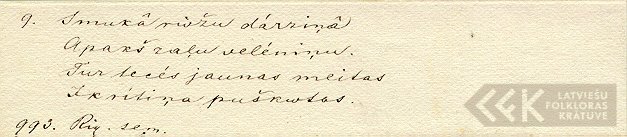 9. Smukâ rôžu dárziņâ
Apakš zaļu veléniņu.
Tur tecés jaunas meitas
Ik rítiņa puškotas.
993. Rig. sem.
LATVIEŠU
FOLKLORAS
KRĀTUVE